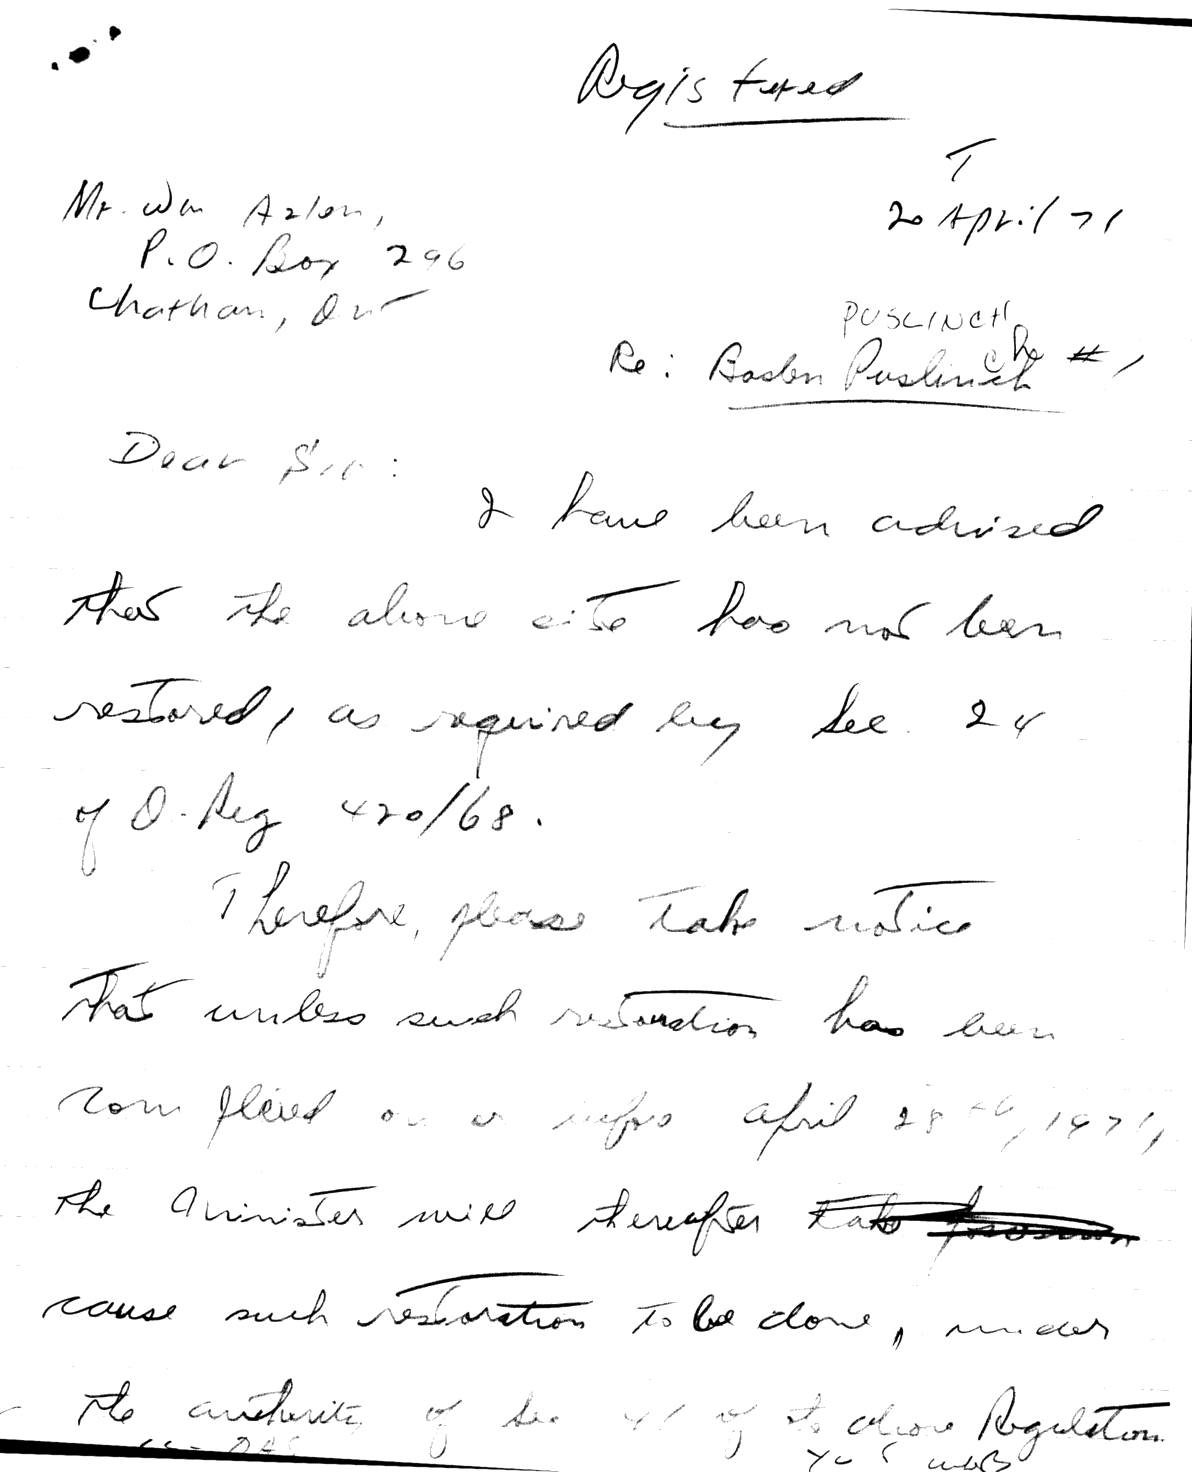 Registered
T
20 April 71
Mr. Wm Azlon,
P.O. Box 296
Chatham, Ont
PUSLINCH
Re: Baden Puslinch #1
Dear Sir:
I have been advised
that the above site has not been
restored, as required by Sec. 24
of O. Reg 420/68.
Therefore, please take notice
that unless such restoration has been
completed on or before April 28th, 1971,
the Minister will thereafter take
cause such restoration to be done, under
the authority of Sec 41 of the above Regulation